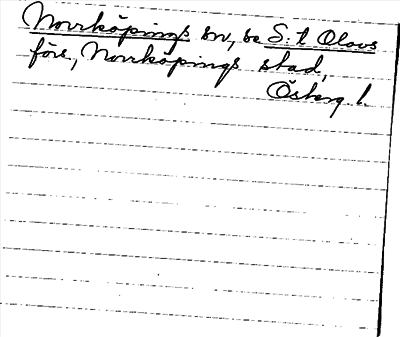 Norrköpings sn, se S:t Olovs
förs, Norrköpings stad,
Österg. l.